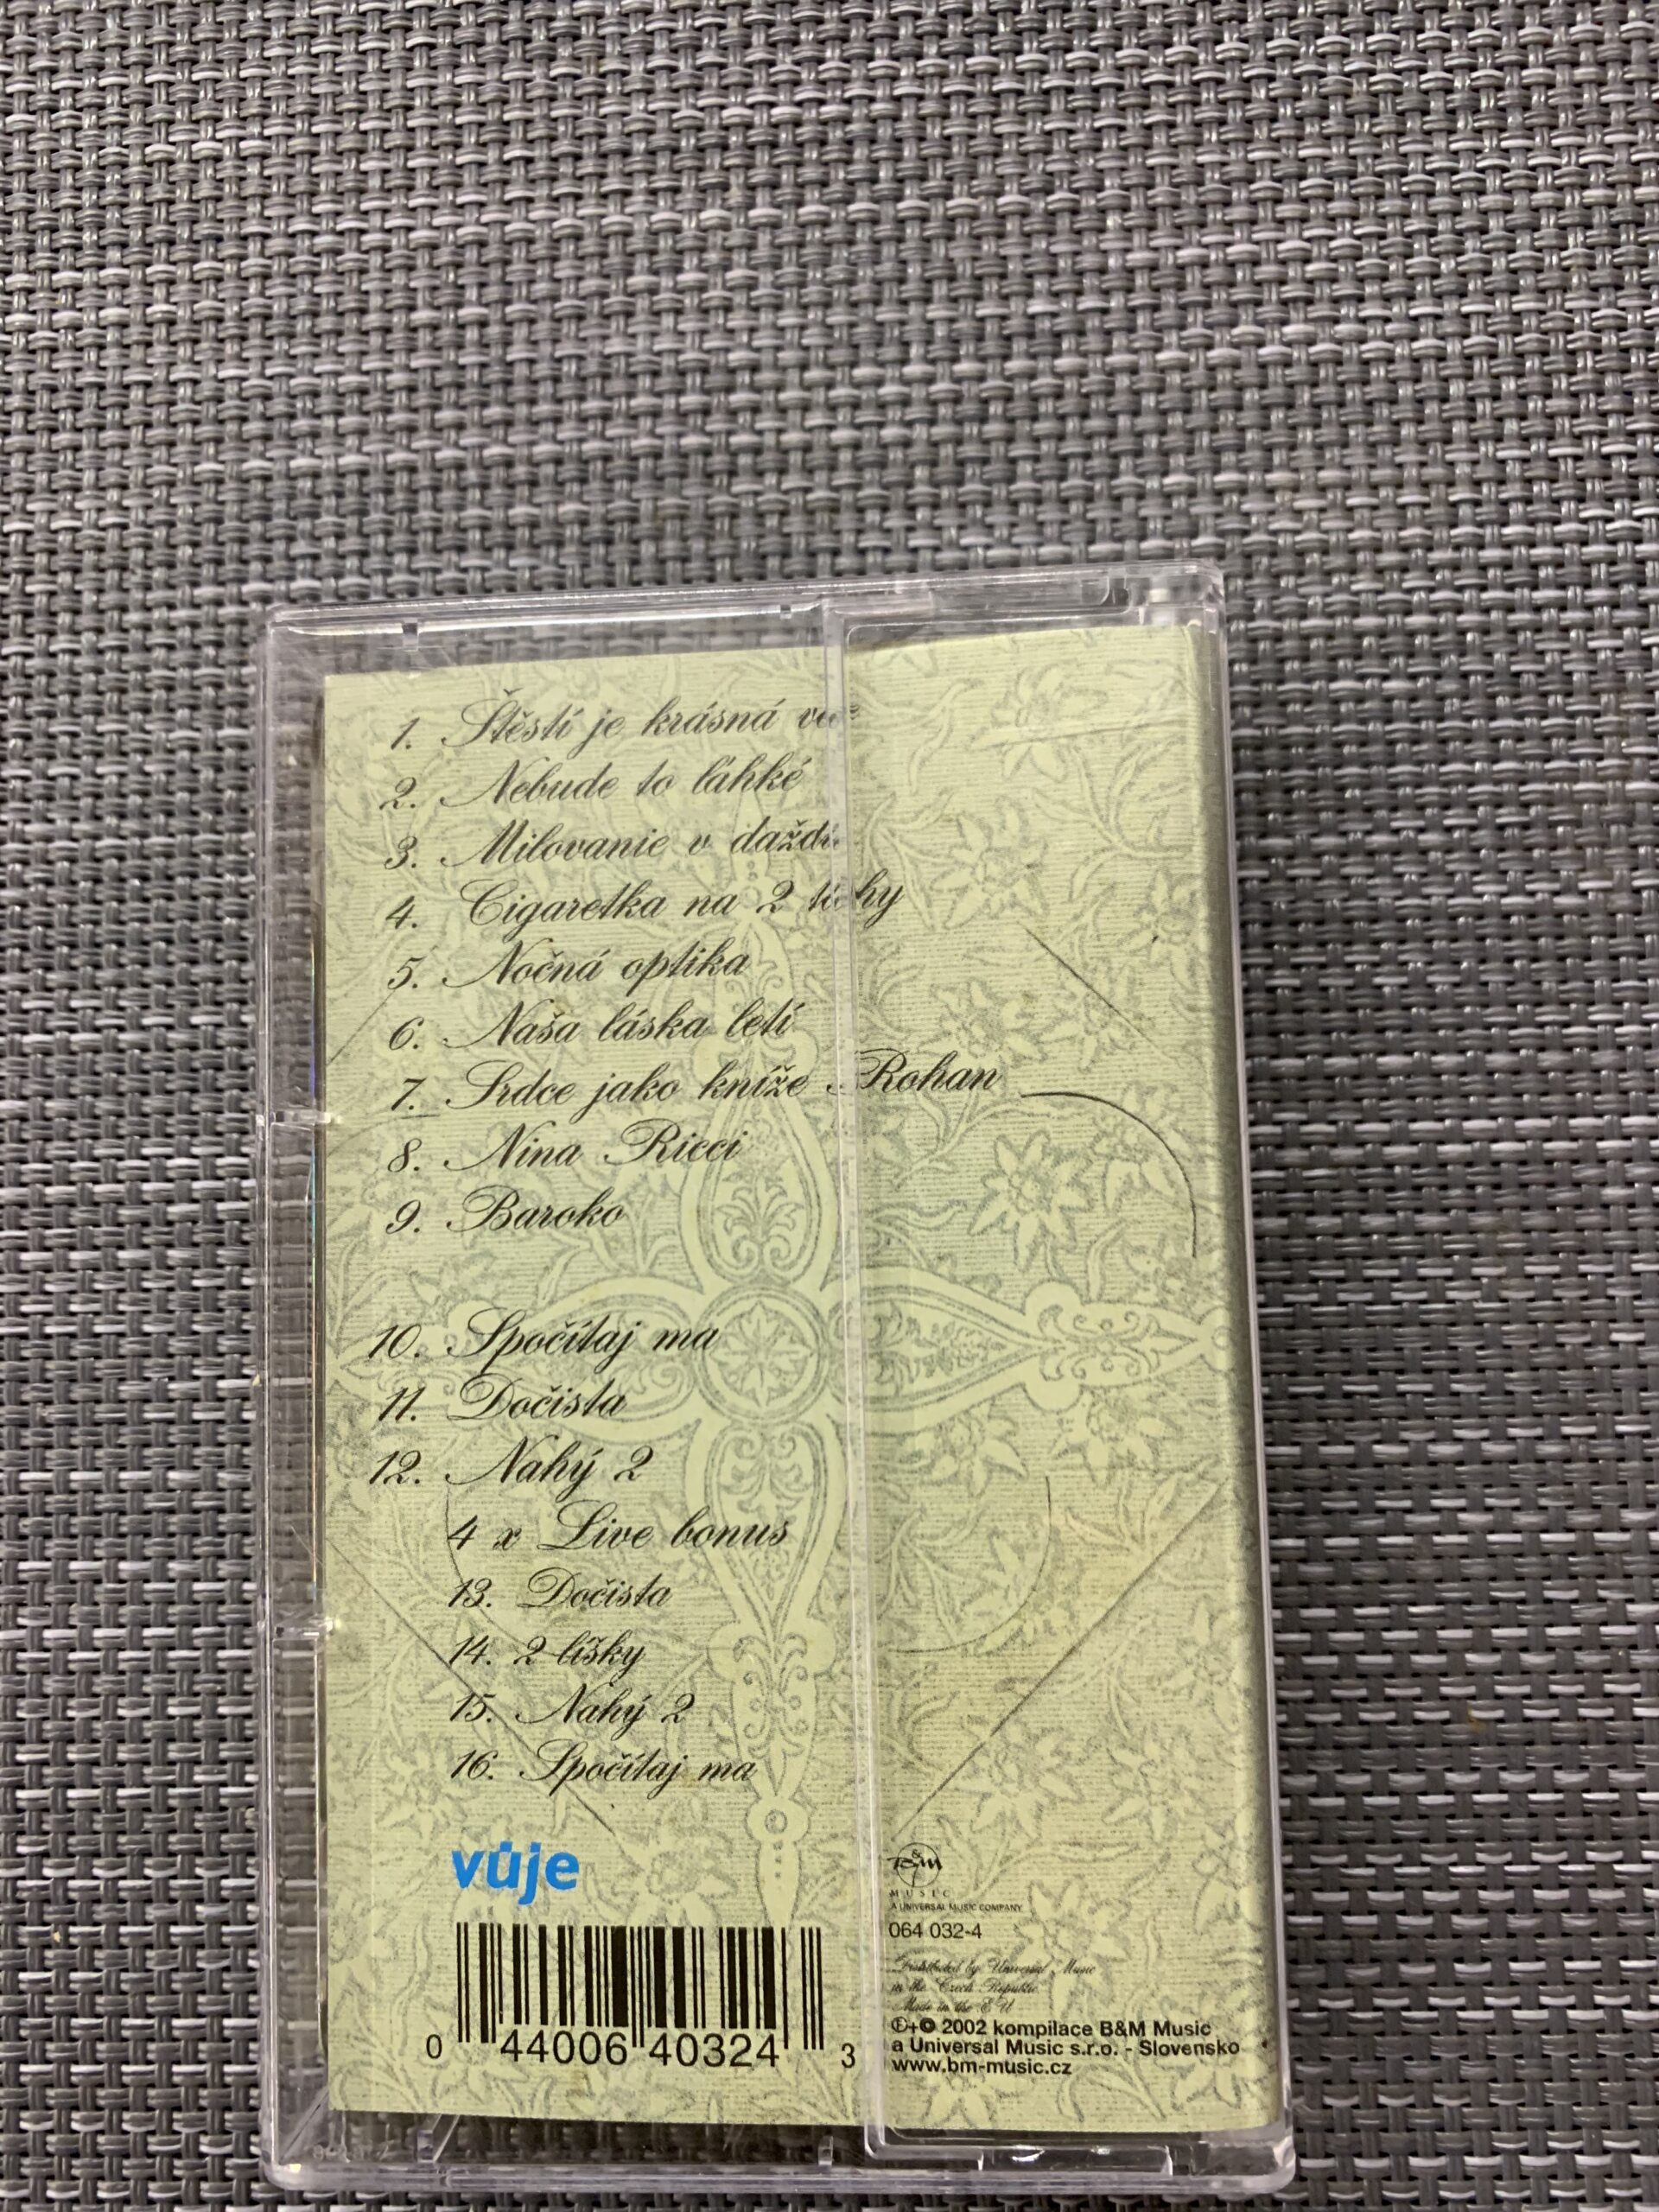 1. Štěstí je krásná
2. Nebude to ľahké
3. Milovanie v daždi
4. Cigaretka na 2 ťahy
5. Nočná optika
6. Naša láska letí
7. Srdce jako kníže Rohan
8. Nina Ricci
9. Baroko
10. Spočítaj ma
11. Dočista
12. Nahý 2
4 x Live bonus
13. Dočista
14. 2 líšky
15. Nahý 2
16. Spočítaj ma
vůje
B&M
MUSIC
A UNIVERSAL MUSIC COMPANY
064 032-4
Distributed by Universal Music
in the Czech Republic
Made in the E.U
0 44006 40324 3
℗+© 2002 kompilace B&M Music
a Universal Music s.r.o. - Slovensko
www.bm-music.cz